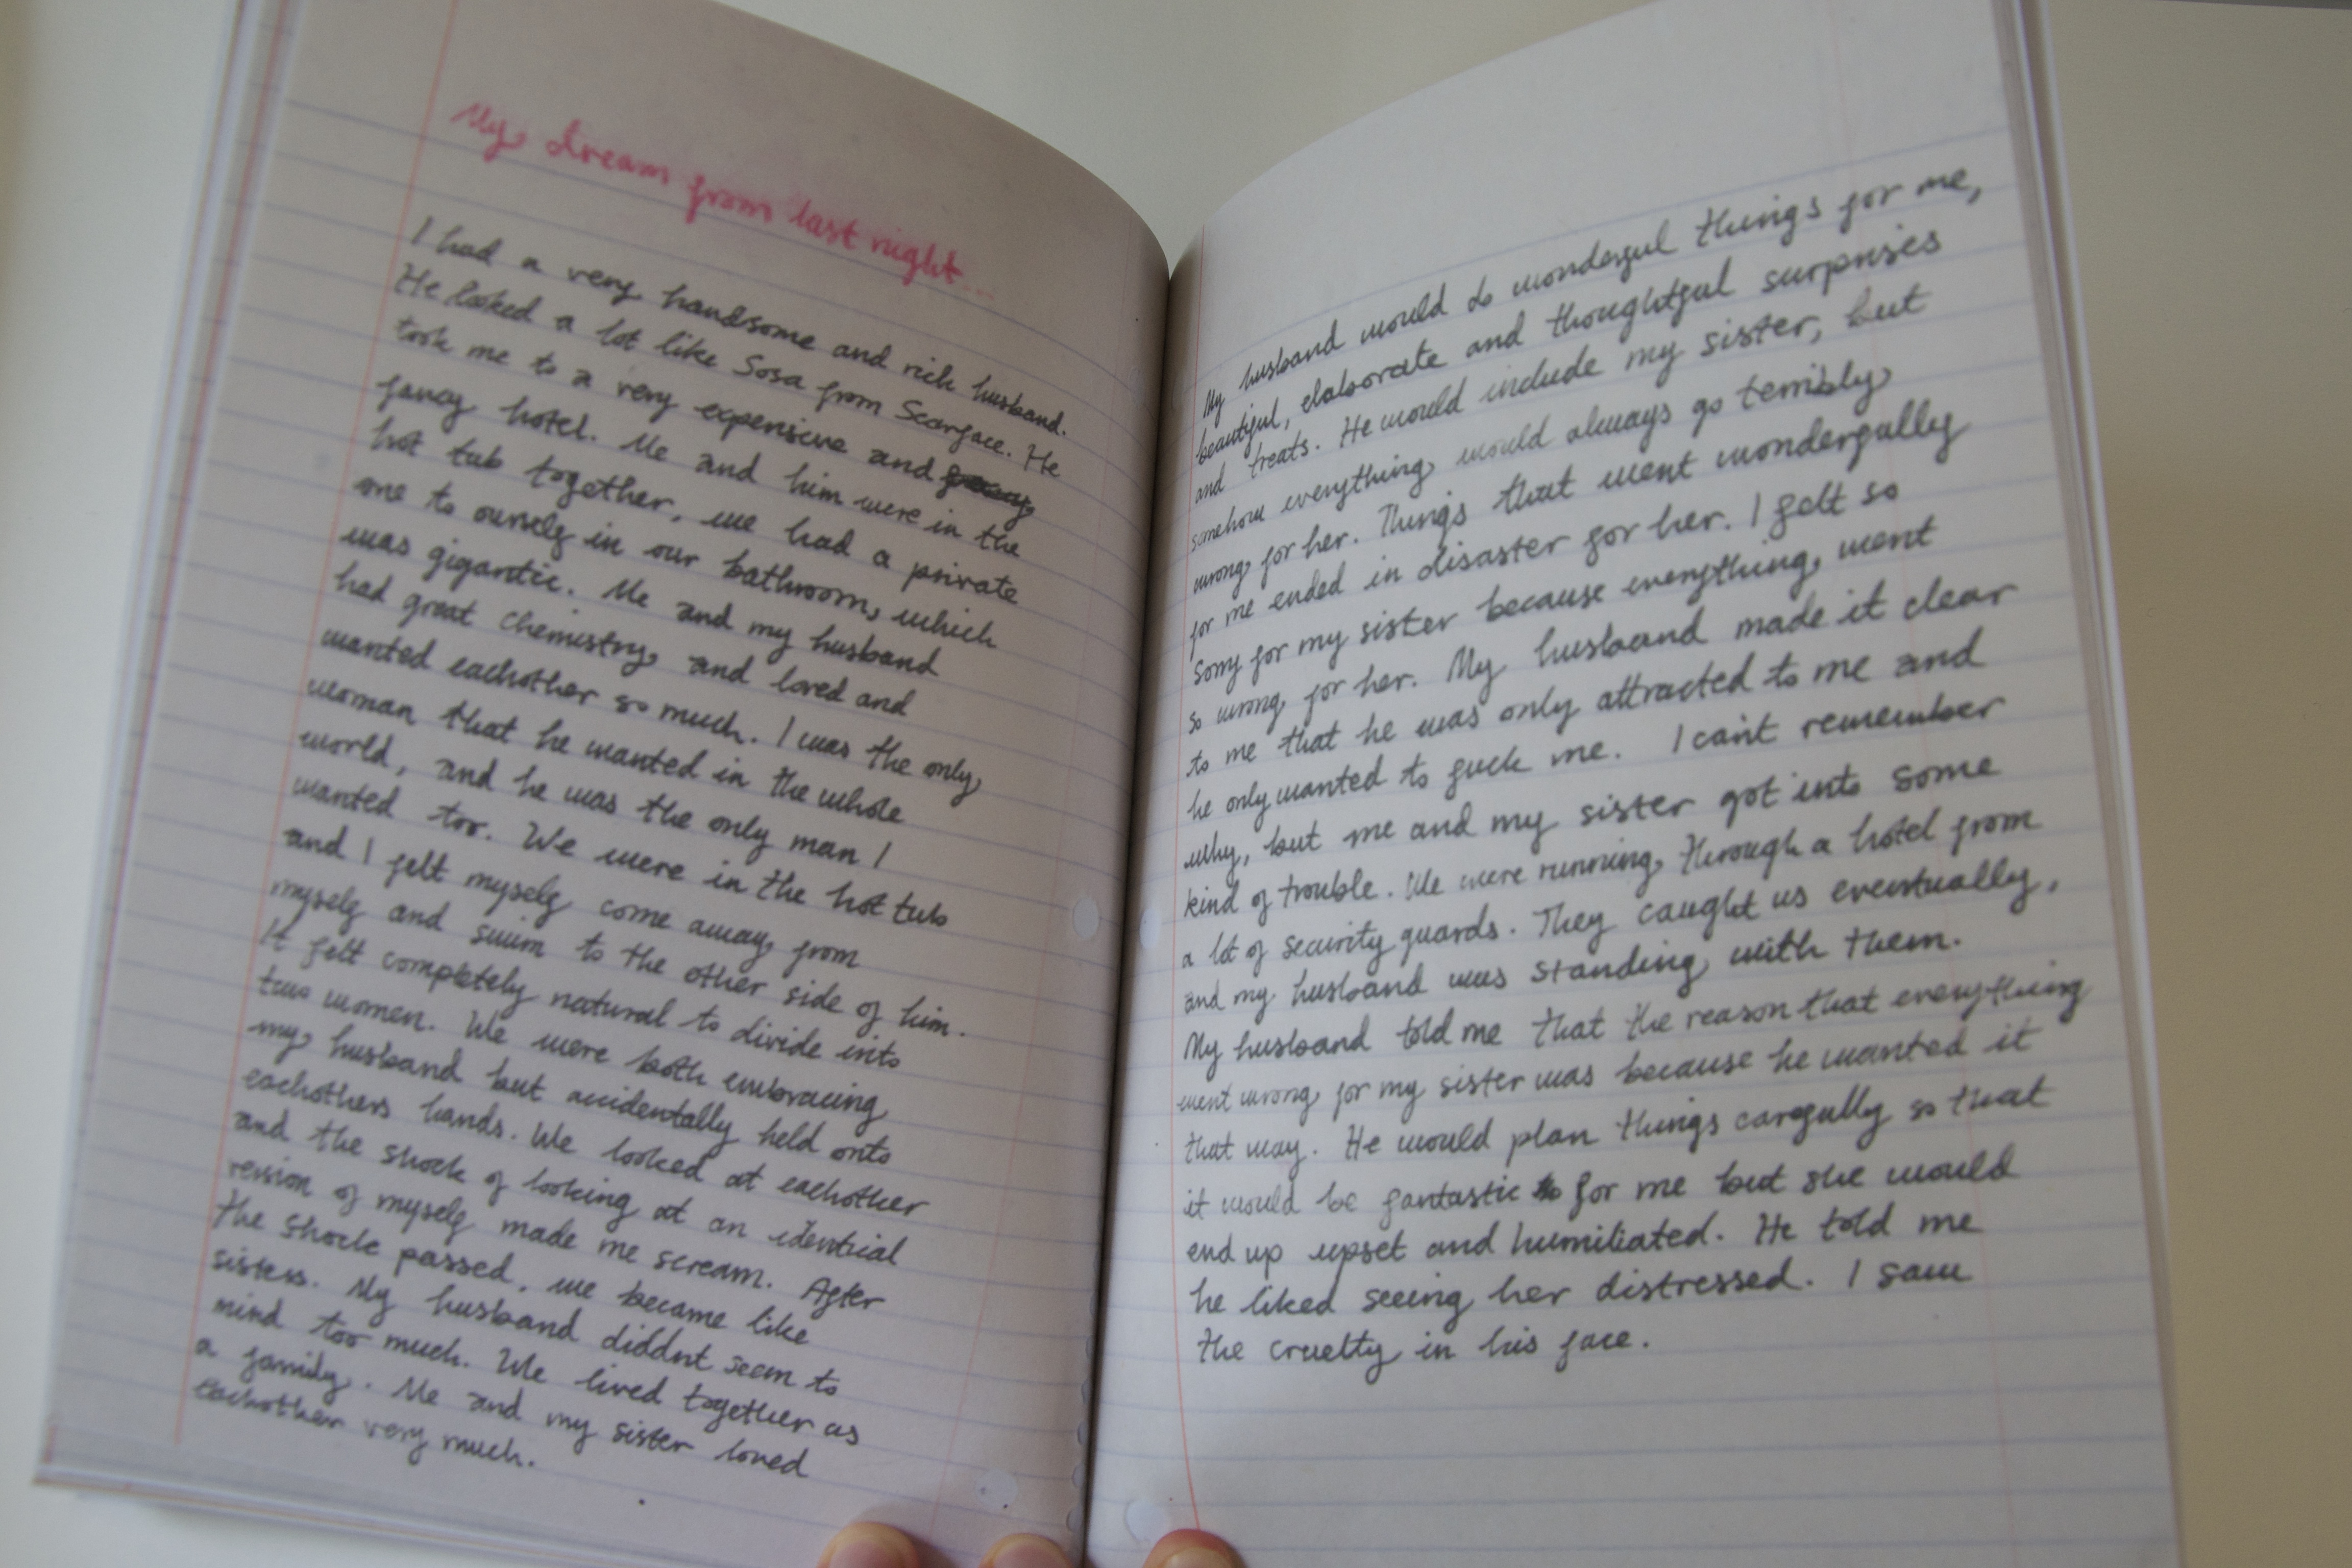 My dream from last night...
I had a very handsome and rich husband.
He looked a lot like Sosa from Scarface. He
took me to a very expensive and
fancy hotel. Me and him were in the
hot tub together, we had a private
one to ourself in our bathroom, which
was gigantic. Me and my husband
had great chemistry, and loved and
wanted eachother so much. I was the only
woman that he wanted in the whole
world, and he was the only man I
wanted too. We were in the hot tub
and I felt myself come away from
myself and swim to the other side of him.
It felt completely natural to divide into
two women. We were both embracing
my husband but accidentally held onto
eachothers hands. We looked at eachother
and the shock of looking at an identical
version of myself made me scream. After
the shock passed, we became like
sisters. My husband diddnt seem to
mind too much. We lived together as
a family. Me and my sister loved
eachother very much.
My husband would do wonderful things for me,
beautiful, elaborate and thoughtful surprises
and treats. He would include my sister, but
somehow everything would always go terribly
wrong for her. Things that went wonderfully
for me ended in disaster for her. I felt so
sorry for my sister because everything went
so wrong for her. My husband made it clear
to me that he was only attracted to me and
he only wanted to fuck me. I can't remember
why, but me and my sister got into some
kind of trouble. We were running through a hotel from
a lot of security guards. They caught us eventually,
and my husband was standing with them.
My husband told me that the reason that everything
went wrong for my sister was because he wanted it
that way. He would plan things carefully so that
it would be fantastic for me but she would
end up upset and humiliated. He told me
he liked seeing her distressed. I saw
the cruelty in his face.